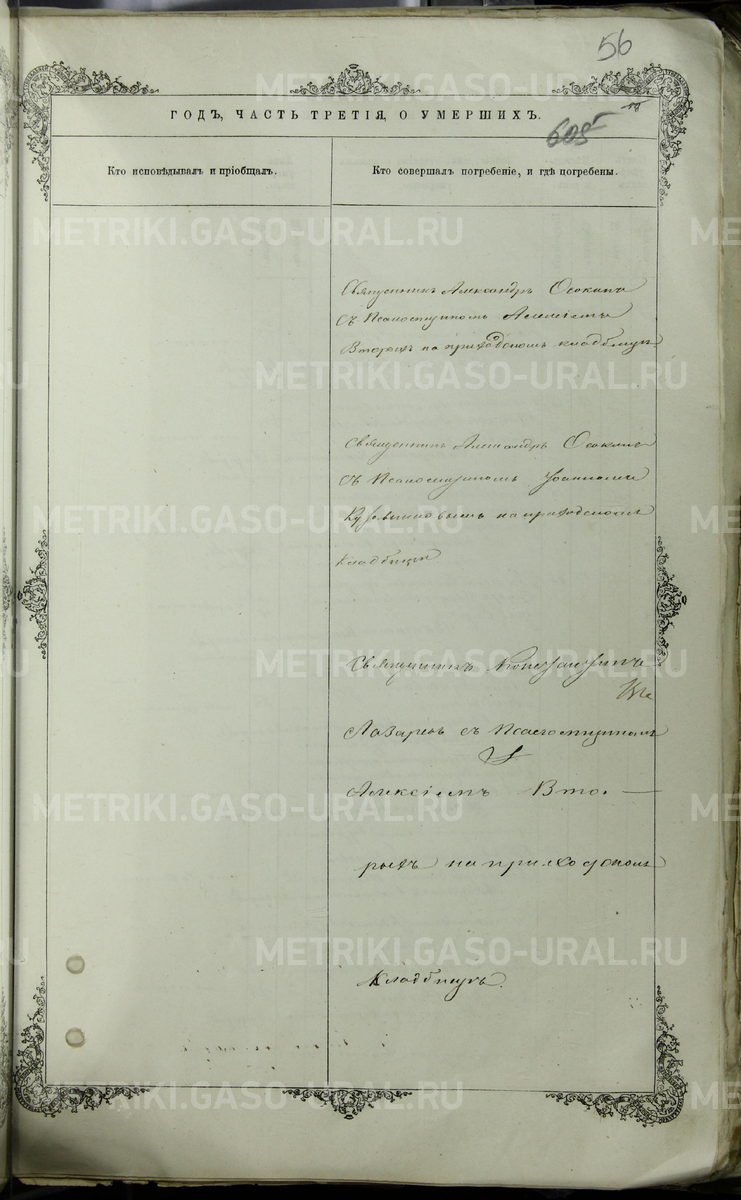 56
ГОДЪ, ЧАСТЬ ТРЕТІЯ, О УМЕРШИХЪ.
605
Кто исповѣдывалъ и пріобщалъ.
Кто совершалъ погребеніе, и гдѣ погребены.
Священникъ Александръ Осокинъ
съ Псаломщикомъ Алексіемъ
Вторыхъ на приходскомъ кладбищѣ
Священникъ Александръ Осокинъ
съ Псаломщикомъ Іоанномъ
на приходскомъ
кладбищѣ
Священникъ Константинъ
Лазаревъ съ Псаломщикомъ
Алексіемъ Вто-
рыхъ на приходскомъ
кладбищѣ.
METRIKI.GASO-URAL.RU